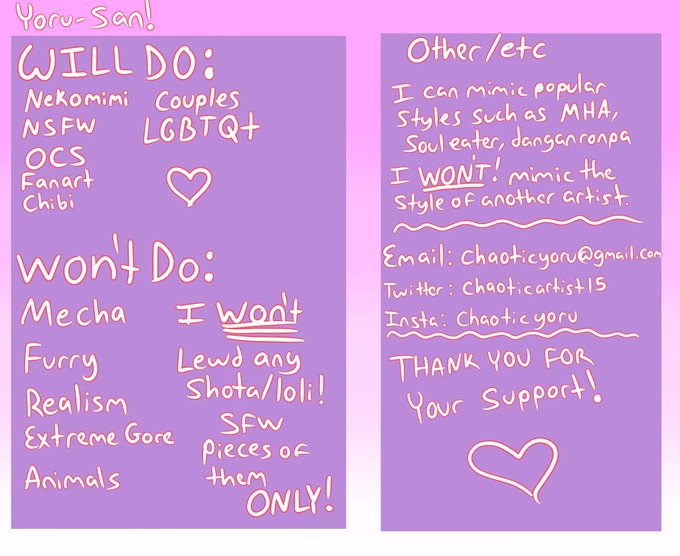 Yoru-San!
WILL DO:
Nekomimi
NSFW
OCS
Fanart
Chibi
Couples
LGBTQ+
Won't Do:
Mecha
Furry
Realism
Extreme Gore
Animals
I won't
Lewd any
Shota/loli!
SFW
pieces of
them
ONLY!
Other/etc
I can mimic popular
styles such as MHA,
Soul eater, danganronpa
I WON'T! mimic the
style of another artist.
Email: chaoticyoru@gmail.com
Twitter: chaoticartist15
Insta: Chaoticyoru
THANK YOU FOR
Your Support!